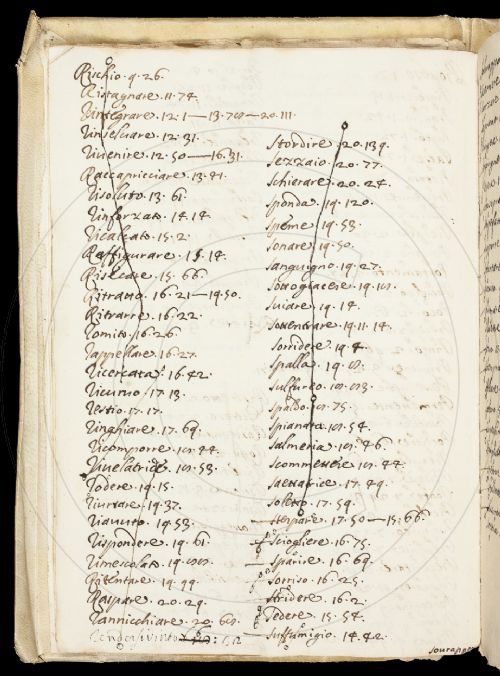 Rischio. 9. 26.
Ristagnare. 11. 74.
Rintegrare. 12. 1 — 13. — 20. 111.
12. 31.
Rinvenire. 12. 50 — 16. 31.
Raccapricciare. 13. 41.
Risoluto. 13. 61.
Rinforzato. 14. 14.
Ricalcato. 15. 2.
Raffigurare. 15. 14.
Risecare. 15. 66.
Ritrano. 16. 21 — 19. 50.
Ritrarre. 16. 22.
Romito. 16. 26.
Rappellare. 16. 27.
Ricercata. 16. 42.
17. 13.
Restio. 17. 17.
Ringhiare. 17. 69.
Ricomporre. 44.
53.
Rodere. 19. 15.
19. 37.
Riavuto. 19. 53.
Rispondere. 19. 61.
Rimescolato. 19.
Ritentare. 19. 99.
Raspare. 20. 29.
Rannicchiare. 20.
Stordire. 20. 139.
Sezzaio. 20. 77.
Schierare. 20. 24.
Sponda. 19. 120.
Speme. 19. 53.
Sonare. 19. 50.
Sanguigno. 19. 27.
Sottogiacere. 19.
19. 14.
Sottentrare. 19. 11. 14.
Sorridere. 19. 4.
Spalla. 19.
Sulfureo.
Spaldo. 75.
Spianata. 54.
Salmeria. 46.
Scommettere. 44.
Saettatrice. 17. 49.
Soletto. 17. 59.
Sterpare. 17. 50 — 15. 66.
Sciogliere. 16. 75.
Sparire. 16. 69.
Sorriso. 16. 25.
Stridere. 16. 2.
Sedere. 15. 54.
Suffumigio. 14. 42.